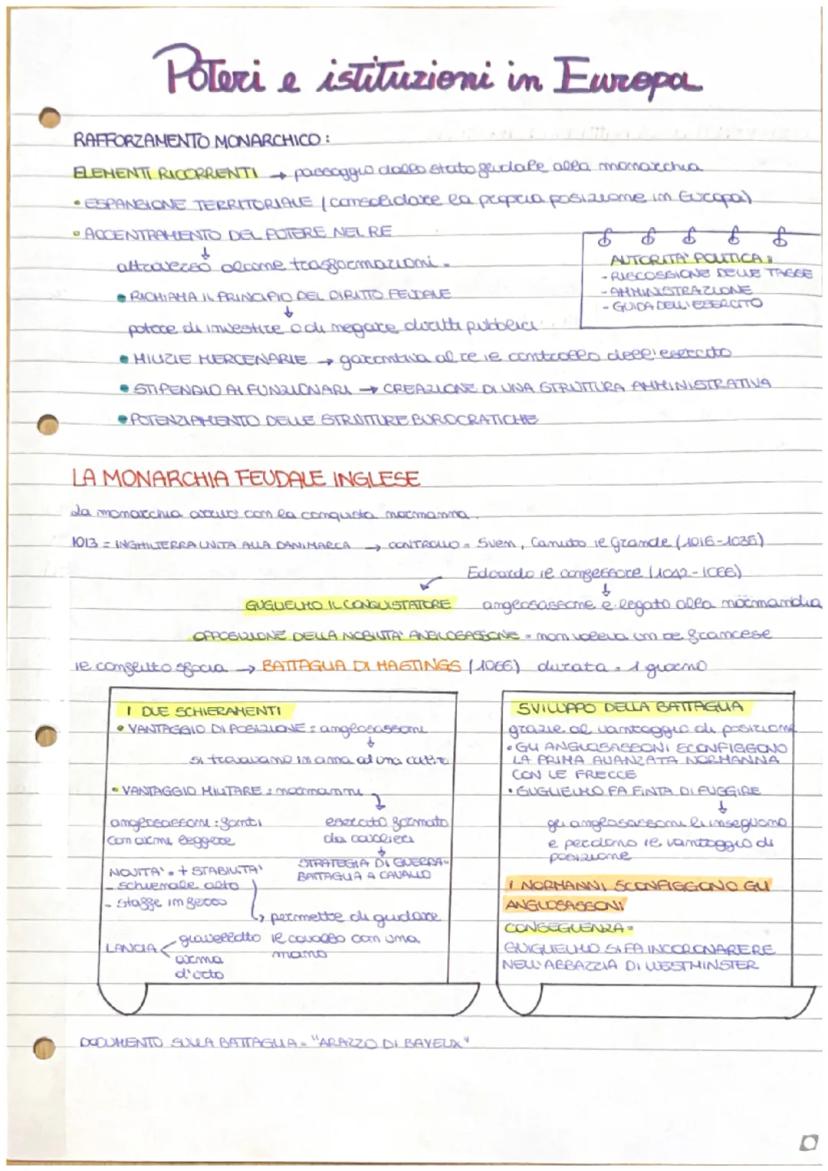 Poteri e istituzioni in Europa
RAFFORZAMENTO MONARCHICO:
ELEMENTI RICORRENTI → passaggio dallo stato feudale alla monarchia
• ESPANSIONE TERRITORIALE (consolidare la propria posizione in Europa)
• ACCENTRAMENTO DEL POTERE NEL RE
↓
attraverso alcune trasformazioni.
AUTORITA' POLITICA:
- RISCOSSIONE DELLE TASSE
- AMMINISTRAZIONE
- GUIDA DELL'ESERCITO
• RICHIAMA IL PRINCIPIO DEL DIRITTO FEUDALE
↓
potere di investire o di negare diritti pubblici
• MILIZIE MERCENARIE → garantiva al re il controllo dell'esercito
• STIPENDIO AI FUNZIONARI → CREAZIONE DI UNA STRUTTURA AMMINISTRATIVA
• POTENZIAMENTO DELLE STRUTTURE BUROCRATICHE
LA MONARCHIA FEUDALE INGLESE
La monarchia arrivò con la conquista normanna.
1013 = INGHILTERRA UNITA ALLA DANIMARCA → CONTROLLO = Sven, Canuto il Grande (1016-1035)
Edoardo il confessore (1042-1066)
↓
GUGLIELMO IL CONQUISTATORE anglosassone e legato alla normandia
OPPOSIZIONE DELLA NOBILTA' ANGLOSASSONE = non voleva un re francese
il conflitto sfocia → BATTAGLIA DI HASTINGS (1066) durata = 1 giorno
I DUE SCHIERAMENTI
• VANTAGGIO DI POSIZIONE = anglosassoni
↓
si trovavano in cima ad una collina
• VANTAGGIO MILITARE = normanni
anglosassoni: fanti
con armi leggere
esercito formato
da cavalieri
↓
STRATEGIA DI GUERRA=
BATTAGLIA A CAVALLO
NOVITA' = + STABILITA'
- schienale alto
- staffe in ferro
↳ permette di guidare
il cavallo con una
mano
LANCIA < giavellotto
arma
d'urto
SVILUPPO DELLA BATTAGLIA
grazie al vantaggio di posizione
• GLI ANGLOSASSONI SCONFIGGONO
LA PRIMA AVANZATA NORMANNA
CON LE FRECCE
• GUGLIELMO FA FINTA DI FUGGIRE
↓
gli anglosassoni li inseguono
e perdono il vantaggio di
posizione
I NORMANNI SCONFIGGONO GLI
ANGLOSASSONI
CONSEGUENZA=
GUIGLIELMO SI FA INCORONARERE
NELL'ABBAZZIA DI WESTMINSTER
DOCUMENTO SULLA BATTAGLIA = "ARAZZO DI BAYEUX"